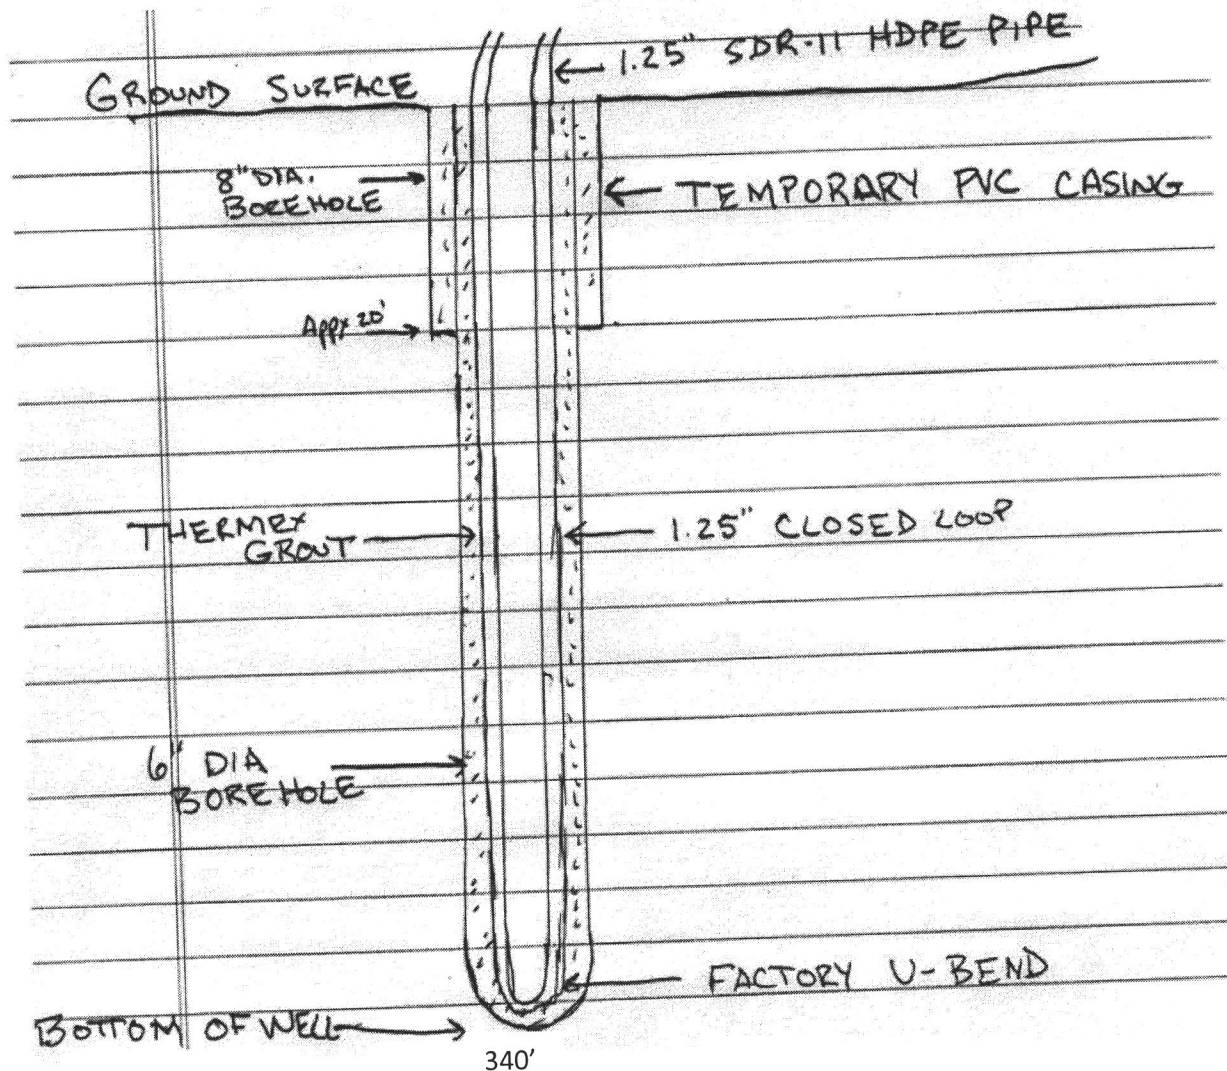 1.25" SDR-11 HDPE PIPE
GROUND SURFACE
8" DIA.
BOREHOLE
TEMPORARY PVC CASING
Appx 20'
THERMEX
GROUT
1.25" CLOSED LOOP
6" DIA
BOREHOLE
FACTORY U-BEND
BOTTOM OF WELL
340'